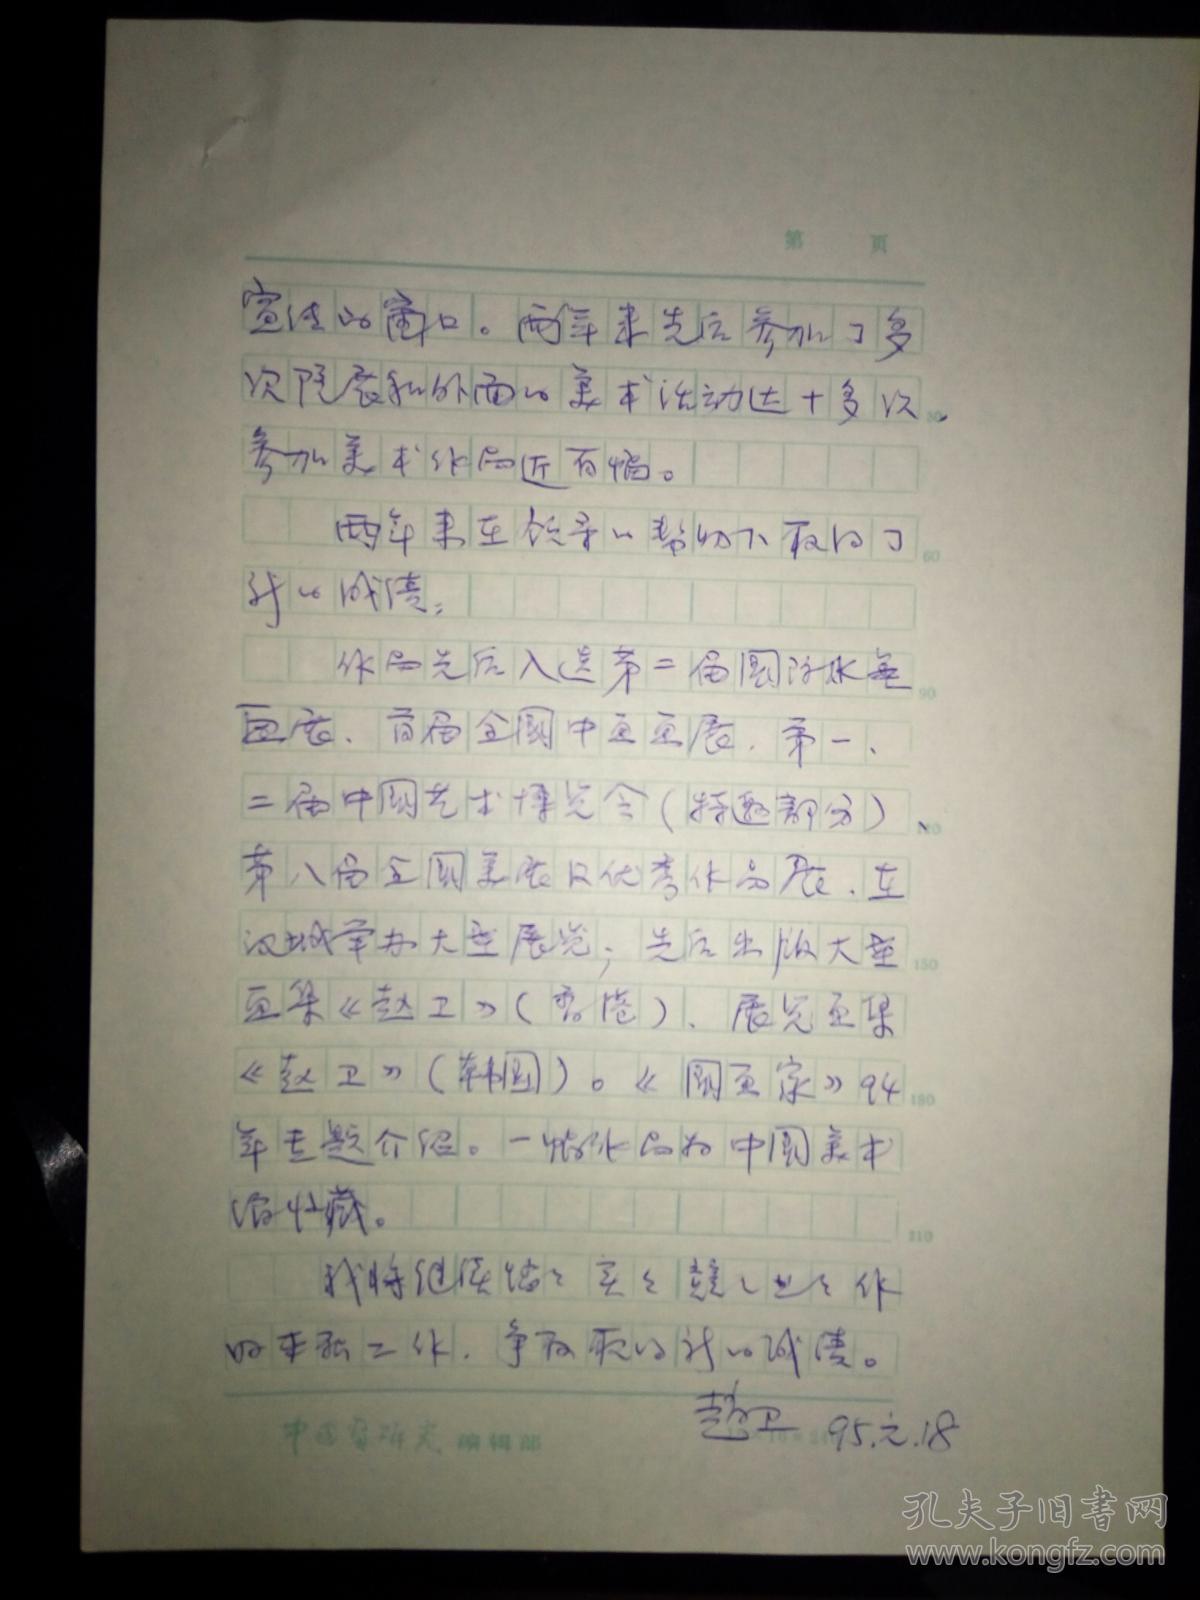 第 页
宣传的窗口。两年来先后参加了多
次院展和外面的美术活动达十多次、
参加美术作品近百幅。
两年来在领导的帮助下取得了
新的成绩：
作品先后入选第二届国际水墨
画展、首届全国中国画展、第一、
二届中国艺术博览会（特邀部分）、
第八届全国美展及优秀作品展、在
汉城举办大型展览；先后出版大型
画集《赵卫》（香港）、展览画集
《赵卫》（韩国）。《国画家》94
年专题介绍。一幅作品为中国美术
馆收藏。
我将继续踏踏实实兢兢业业作
好本职工作，争取取得新的成绩。
赵卫 95.元.18
中国画研究 编辑部
30
60
90
120
150
180
210
孔夫子旧书网
www.kongfz.com